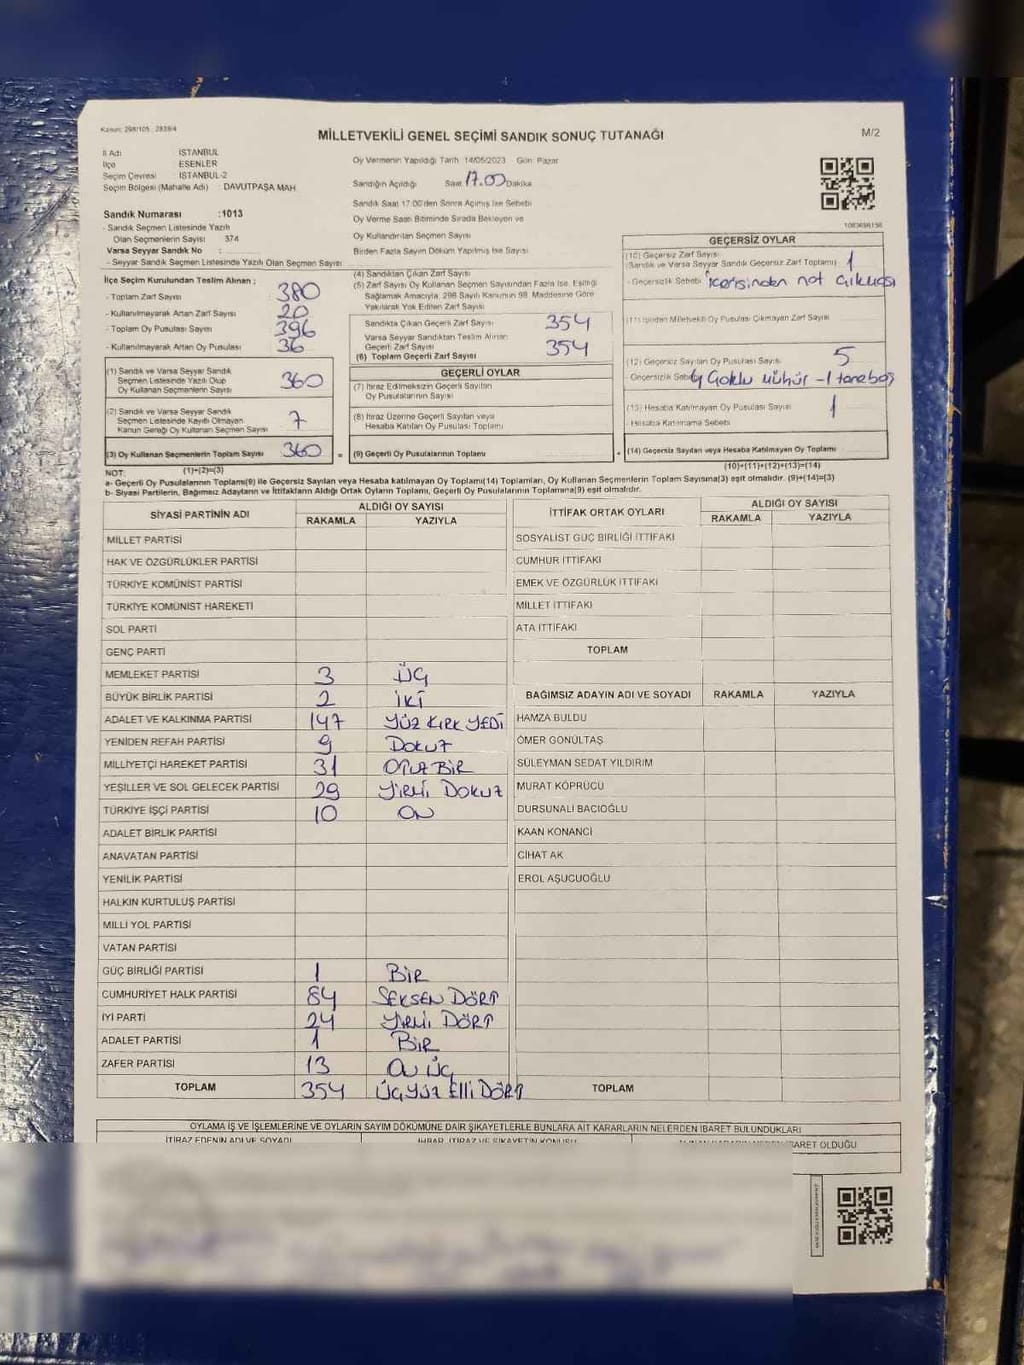 Kanun: 298/105 , 2839/4
MİLLETVEKİLİ GENEL SEÇİMİ SANDIK SONUÇ TUTANAĞI
M/2
İl Adı İSTANBUL
İlçe ESENLER
Seçim Çevresi İSTANBUL-2
Seçim Bölgesi (Mahalle Adı) : DAVUTPAŞA MAH.
Oy Vermenin Yapıldığı Tarih: 14/05/2023 Gün: Pazar
Sandığın Açıldığı Saat 17.00 Dakika
Sandık Saat 17:00'den Sonra Açılmış İse Sebebi
Sandık Numarası :1013
- Sandık Seçmen Listesinde Yazılı
Olan Seçmenlerin Sayısı 374
Varsa Seyyar Sandık No :
- Seyyar Sandık Seçmen Listesinde Yazılı Olan Seçmen Sayısı
Oy Verme Saati Bitiminde Sırada Bekleyen ve
Oy Kullandırılan Seçmen Sayısı
Birden Fazla Sayım Döküm Yapılmış İse Sayısı
İlçe Seçim Kurulundan Teslim Alınan ;
- Toplam Zarf Sayısı 380
- Kullanılmayarak Artan Zarf Sayısı 20
- Toplam Oy Pusulası Sayısı 396
- Kullanılmayarak Artan Oy Pusulası 36
(1) Sandık ve Varsa Seyyar Sandık
Seçmen Listesinde Yazılı Olup
Oy Kullanan Seçmenlerin Sayısı 360
(2) Sandık ve Varsa Seyyar Sandık
Seçmen Listesinde Kayıtlı Olmayan
Kanun Gereği Oy Kullanan Seçmen Sayısı 7
(3) Oy Kullanan Seçmenlerin Toplam Sayısı 360 =
(1)+(2)=(3)
(4) Sandıktan Çıkan Zarf Sayısı
(5) Zarf Sayısı Oy Kullanan Seçmen Sayısından Fazla İse, Eşitliği
Sağlamak Amacıyla, 298 Sayılı Kanunun 98. Maddesine Göre
Yakılarak Yok Edilen Zarf Sayısı
Sandıkta Çıkan Geçerli Zarf Sayısı 354
Varsa Seyyar Sandıktan Teslim Alınan
Geçerli Zarf Sayısı 354
(6) Toplam Geçerli Zarf Sayısı
GEÇERLİ OYLAR
(7) İtiraz Edilmeksizin Geçerli Sayılan
Oy Pusulalarının Sayısı
(8) İtiraz Üzerine Geçerli Sayılan veya
Hesaba Katılan Oy Pusulası Toplamı
(9) Geçerli Oy Pusulalarının Toplamı +
1083696156
GEÇERSİZ OYLAR
(10) Geçersiz Zarf Sayısı
(Sandık ve Varsa Seyyar Sandık Geçersiz Zarf Toplamı) 1
- Geçersizlik Sebebi içerisinden not çıkması
(11) İçinden Milletvekili Oy Pusulası Çıkmayan Zarf Sayısı
(12) Geçersiz Sayılan Oy Pusulası Sayısı 5
- Geçersizlik Sebebi Çoklu mühür - 1 tane boş
(13) Hesaba Katılmayan Oy Pusulası Sayısı 1
- Hesaba Katılmama Sebebi
(14) Geçersiz Sayılan veya Hesaba Katılmayan Oy Toplamı
(10)+(11)+(12)+(13)=(14)
NOT:
a- Geçerli Oy Pusulalarının Toplamı(9) ile Geçersiz Sayılan veya Hesaba Katılmayan Oy Toplamı(14) Toplamları, Oy Kullanan Seçmenlerin Toplam Sayısına(3) eşit olmalıdır. (9)+(14)=(3)
b- Siyasi Partilerin, Bağımsız Adayların ve İttifakların Aldığı Ortak Oyların Toplamı, Geçerli Oy Pusulalarının Toplamına(9) eşit olmalıdır.
SİYASİ PARTİNİN ADI ALDIĞI OY SAYISI
RAKAMLA YAZIYLA
MİLLET PARTİSİ
HAK VE ÖZGÜRLÜKLER PARTİSİ
TÜRKİYE KOMÜNİST PARTİSİ
TÜRKİYE KOMÜNİST HAREKETİ
SOL PARTİ
GENÇ PARTİ
MEMLEKET PARTİSİ 3 ÜÇ
BÜYÜK BİRLİK PARTİSİ 2 İKİ
ADALET VE KALKINMA PARTİSİ 147 YÜZ KIRK YEDİ
YENİDEN REFAH PARTİSİ 9 DOKUZ
MİLLİYETÇİ HAREKET PARTİSİ 31 OTUZ BİR
YEŞİLLER VE SOL GELECEK PARTİSİ 29 YİRMİ DOKUZ
TÜRKİYE İŞÇİ PARTİSİ 10 ON
ADALET BİRLİK PARTİSİ
ANAVATAN PARTİSİ
YENİLİK PARTİSİ
HALKIN KURTULUŞ PARTİSİ
MİLLİ YOL PARTİSİ
VATAN PARTİSİ
GÜÇ BİRLİĞİ PARTİSİ 1 BİR
CUMHURİYET HALK PARTİSİ 84 SEKSEN DÖRT
İYİ PARTİ 24 YİRMİ DÖRT
ADALET PARTİSİ 1 BİR
ZAFER PARTİSİ 13 ON ÜÇ
TOPLAM 354 ÜÇYÜZ ELLİ DÖRT
İTTİFAK ORTAK OYLARI ALDIĞI OY SAYISI
RAKAMLA YAZIYLA
SOSYALİST GÜÇ BİRLİĞİ İTTİFAKI
CUMHUR İTTİFAKI
EMEK VE ÖZGÜRLÜK İTTİFAKI
MİLLET İTTİFAKI
ATA İTTİFAKI
TOPLAM
BAĞIMSIZ ADAYIN ADI VE SOYADI RAKAMLA YAZIYLA
HAMZA BULDU
ÖMER GÖNÜLTAŞ
SÜLEYMAN SEDAT YILDIRIM
MURAT KÖPRÜCÜ
DURSUNALİ BACIOĞLU
KAAN KONANCİ
CİHAT AK
EROL AŞUCUOĞLU
TOPLAM
OYLAMA İŞ VE İŞLEMLERİNE VE OYLARIN SAYIM DÖKÜMÜNE DAİR ŞİKAYETLERLE BUNLARA AİT KARARLARIN NELERDEN İBARET BULUNDUKLARI
İTİRAZ EDENİN ADI VE SOYADI
İHBAR, İTİRAZ VE ŞİKAYETİN KONUSU
İBARET OLDUĞU